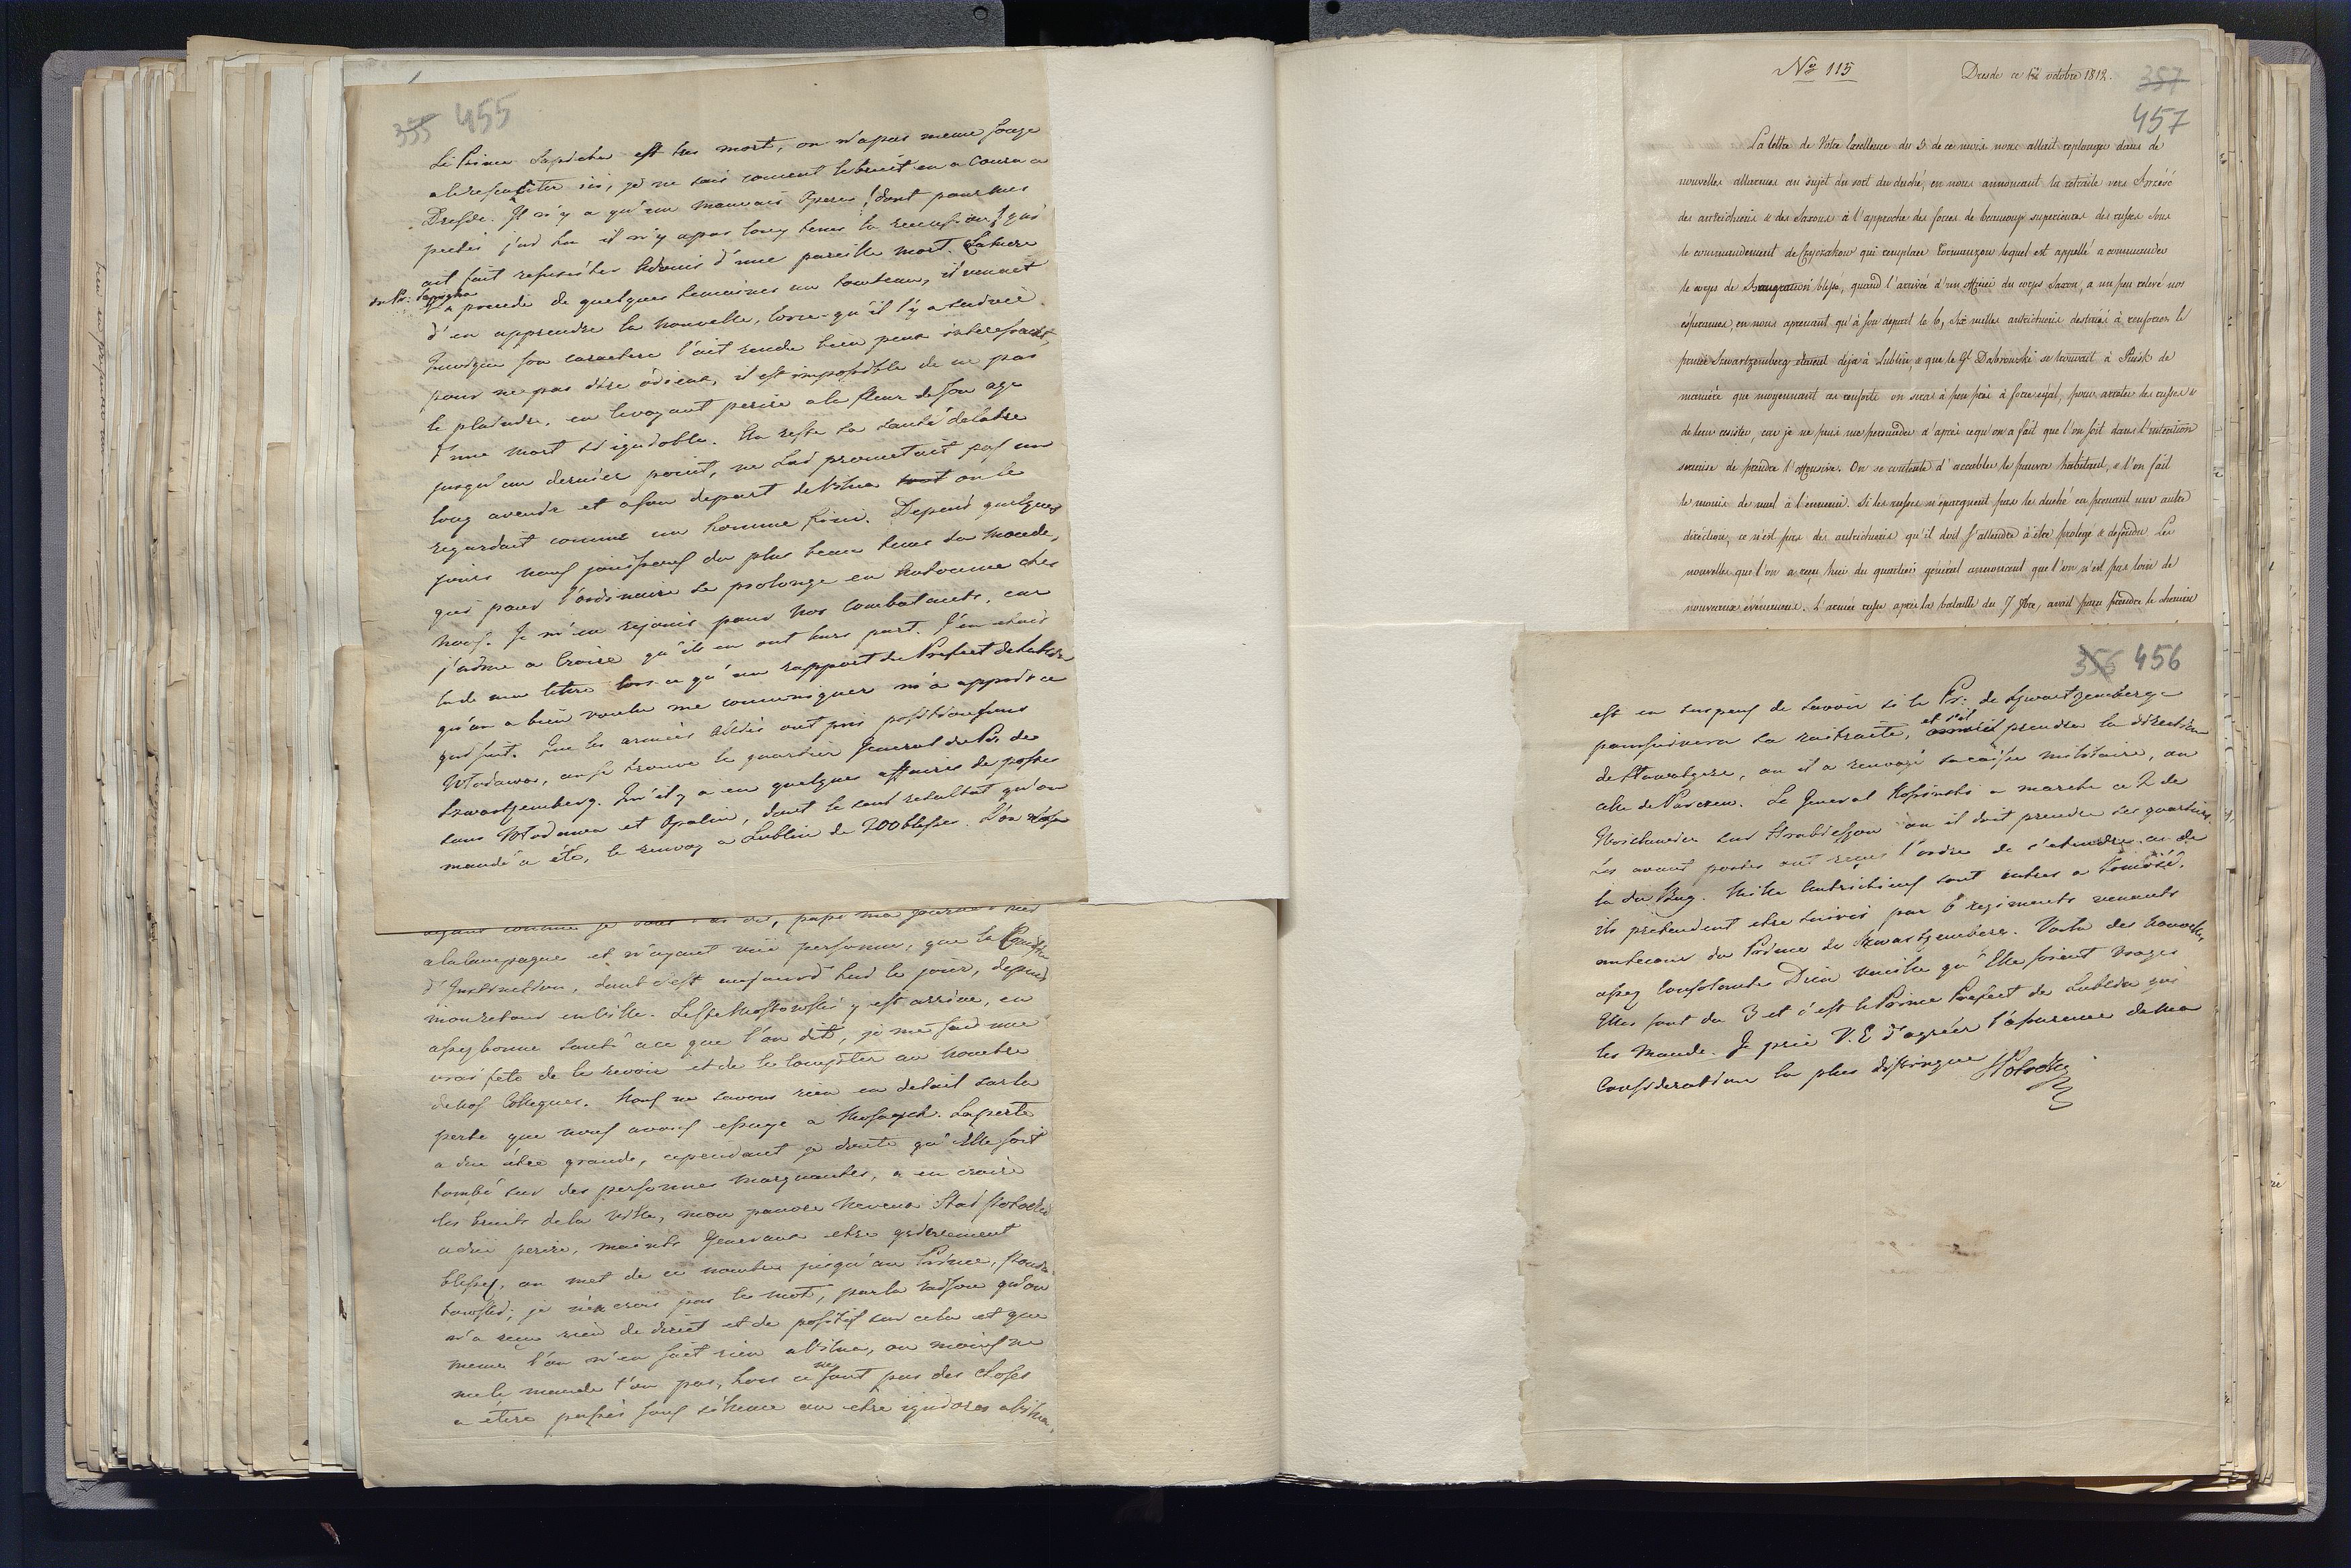 355 455
Le Prince Sapieha est tres mort, on n'a pas meme songe
a le resusciter ici, je ne sais coment le bruit en a couru a
Dresde. Il n'y a qu'un mauvais Opera, dont par
j'ai lu il n'y a pas long tems la recension, qui
ait fait resusciter d'une pareille mort. La mere
du Pr: Sapieha
a precedé de quelques semaines au tombeau, il venait
d'en apprendre la nouvelle, lors-qu'il l'y a suivie.
Quoique son caractere l'ait rendu bien peu interessant,
pour ne pas dire odieux, il est impossible de ne pas
le plaindre, en le voyant perir a la fleur de son age
d'une mort si ignoble. Au reste sa santé delabrée
jusqu'au dernier point, ne lui promettait pas un
long avenir et a son depart de Vilna on le
regardait comme un homme fini. Depuis quelques
jours nous jouissons du plus beau tems du monde,
qui pour l'ordinaire se prolonge en Automne chez
nous. Je m'en rejouis pour nos combatants, car
j'aime a croire qu'ils en ont leur part. J'en etais
la de ma lettre lors-qu'un rapport du Prefect de Lublin
qu'on a bien voulu me comuniquer m'a appris ce
qui suit. Que les armées Alliés ont pris position sous
Wlodawa, ou se trouve le quartier General du Pr. de
Szwartzemberg. Qu'il y a eu quelques affaires de postes
sous Wlodawa et Opalin, dont le seul resultat qu'on
mande a été, le renvoy a Lublin de 200 blessés. L'on
ayant comme je vous l'ai dit, passé ma journée
a la campagne et n'ayant vüe personne, que la
d'Instruction, dont c'est aujourd'hui le jour, depuis
mon retour en Ville. Le Cte Mostowski y est arrivé, en
assez bonne santé a ce que l'on dit, je me fais une
vraie fete de le revoir et de le compter au nombre
de nos Collegues. Nous ne savons rien en detail sur la
perte que nous avons essuye a Mosaysk. La perte
a du etre grande, cependant je doute qu'Elle soit
tombé sur des personnes marquantes, a en croire
les bruits de la Ville, mon pauvre neveu Stas Potocki
a dû perir, maints Generaux etre grievement
blessés, on met de ce nombre jusqu'au Prince, Ponia-
towski; je n'en crois pas le mot, par la raison qu'on
n'a reçu rien de direct et de positif sur cela et que
meme l'on n'en sait rien a Vilna, ou moins ne
me le mande t'on pas, hors ce ne sont pas des choses
a etre passés sous silence ou etre ignorés a Vilna.
No 115
Dresde ce 12 octobre 1812.
357
457
La lettre de Votre Excellence du 5 de ce mois nous allait replonger dans de
nouvelles allarmes au sujet du sort du duché, en nous annoncant la retraite vers Brześć
des autrichiens & des Saxons à l'approche des forces de beaucoup superieures des russes sous
le commandement de Czyczakow qui remplace Tormanzow lequel est appellé a commander
le corps de Bangration blessé, quand l'arrivée d'un officier du corps Saxon, a un peu relevé nos
espérances, en nous aprenant qu'à son depart le 6, Six milles autrichiens destinés à renforcer le
prince Szwartzemberg etaient deja à Lublin, & que le Gl Dąbrowski se trouvait à Pinsk de
manière que moyennant ces renforts on sera à peu près à force egal, pour arreter les russes &
de leur resister, car je ne puis me persuader d'après ce qu'on a fait que l'on soit dans l'intention
serieuse de prendre l'offensive. On se contente d'accabler le pauvre habitant, & l'on fait
le moins de mal à l'ennemi. Si les russes n'épargnent pas le duché en prenant une autre
direction, ce n'est pas des autrichiens qu'il doit s'attendre à être protegé & defendu. Les
nouvelles que l'on a reçu hier du quartier général annoncent que l'on n'est pas loin de
nouveaux événemens. L'armée russe après la bataille du 7 7bre, avait paru prendre le chemin
356 456
est en suspens de savoir si le Pr: de Szwartzemberg
poursuivra sa retraite, et s'il prendra la direction
de , ou il a renvoyé sa caisse militaire, ou
celle de Parczew. Le General Kosinski a marché ce 2 de
sur Hrubieszow ou il doit prendre ses quartiers.
Les avant postes ont reçus l'ordre de s'etendre au de
la du Bug. Mille Autrichiens sont entres a Zamość.
ils pretendent etre suivis par 6 regiments venants
au secours du Prince de Szwartzemberg. Voila des nouvelles
assez consolantes Dieu veuille qu'Elles soient vrayes
Elles sont du 3 et c'est le Prince Prefect de Lublin qui
les mande. Je prie V. E. d'agréer l'assurance de ma
Consideration la plus distingué SPotocki